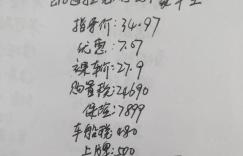 指导价:34.97
优惠:7.07
裸车价:27.9
购置税:24690
保险:7899
车船税:480
上牌:500